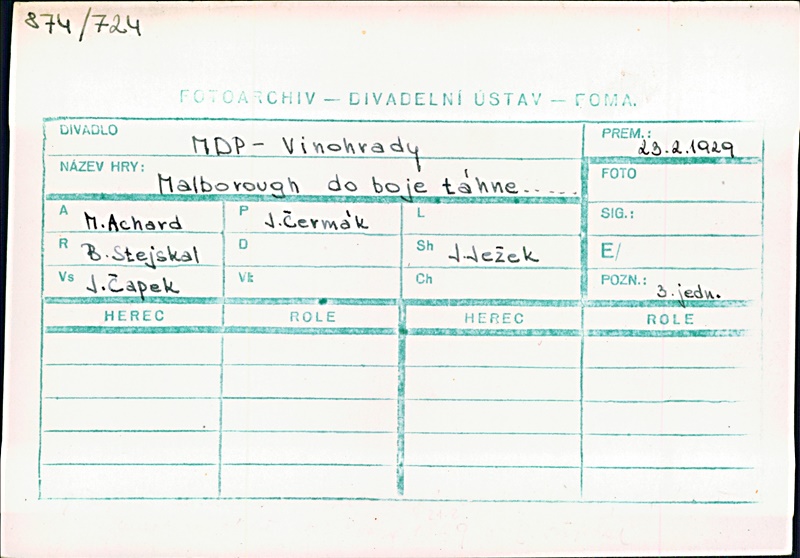 874/724
FOTOARCHIV — DIVADELNÍ ÚSTAV — FOMA.
DIVADLO MDP - Vinohrady PREM.: 23.2.1929
NÁZEV HRY: Malborough do boje táhne...... FOTO
A M.Achard P J.Čermák L SIG.:
R B.Stejskal D Sh J.Ježek E/
Vs J.Čapek Vk Ch POZN.: 3.jedn.
HEREC ROLE HEREC ROLE